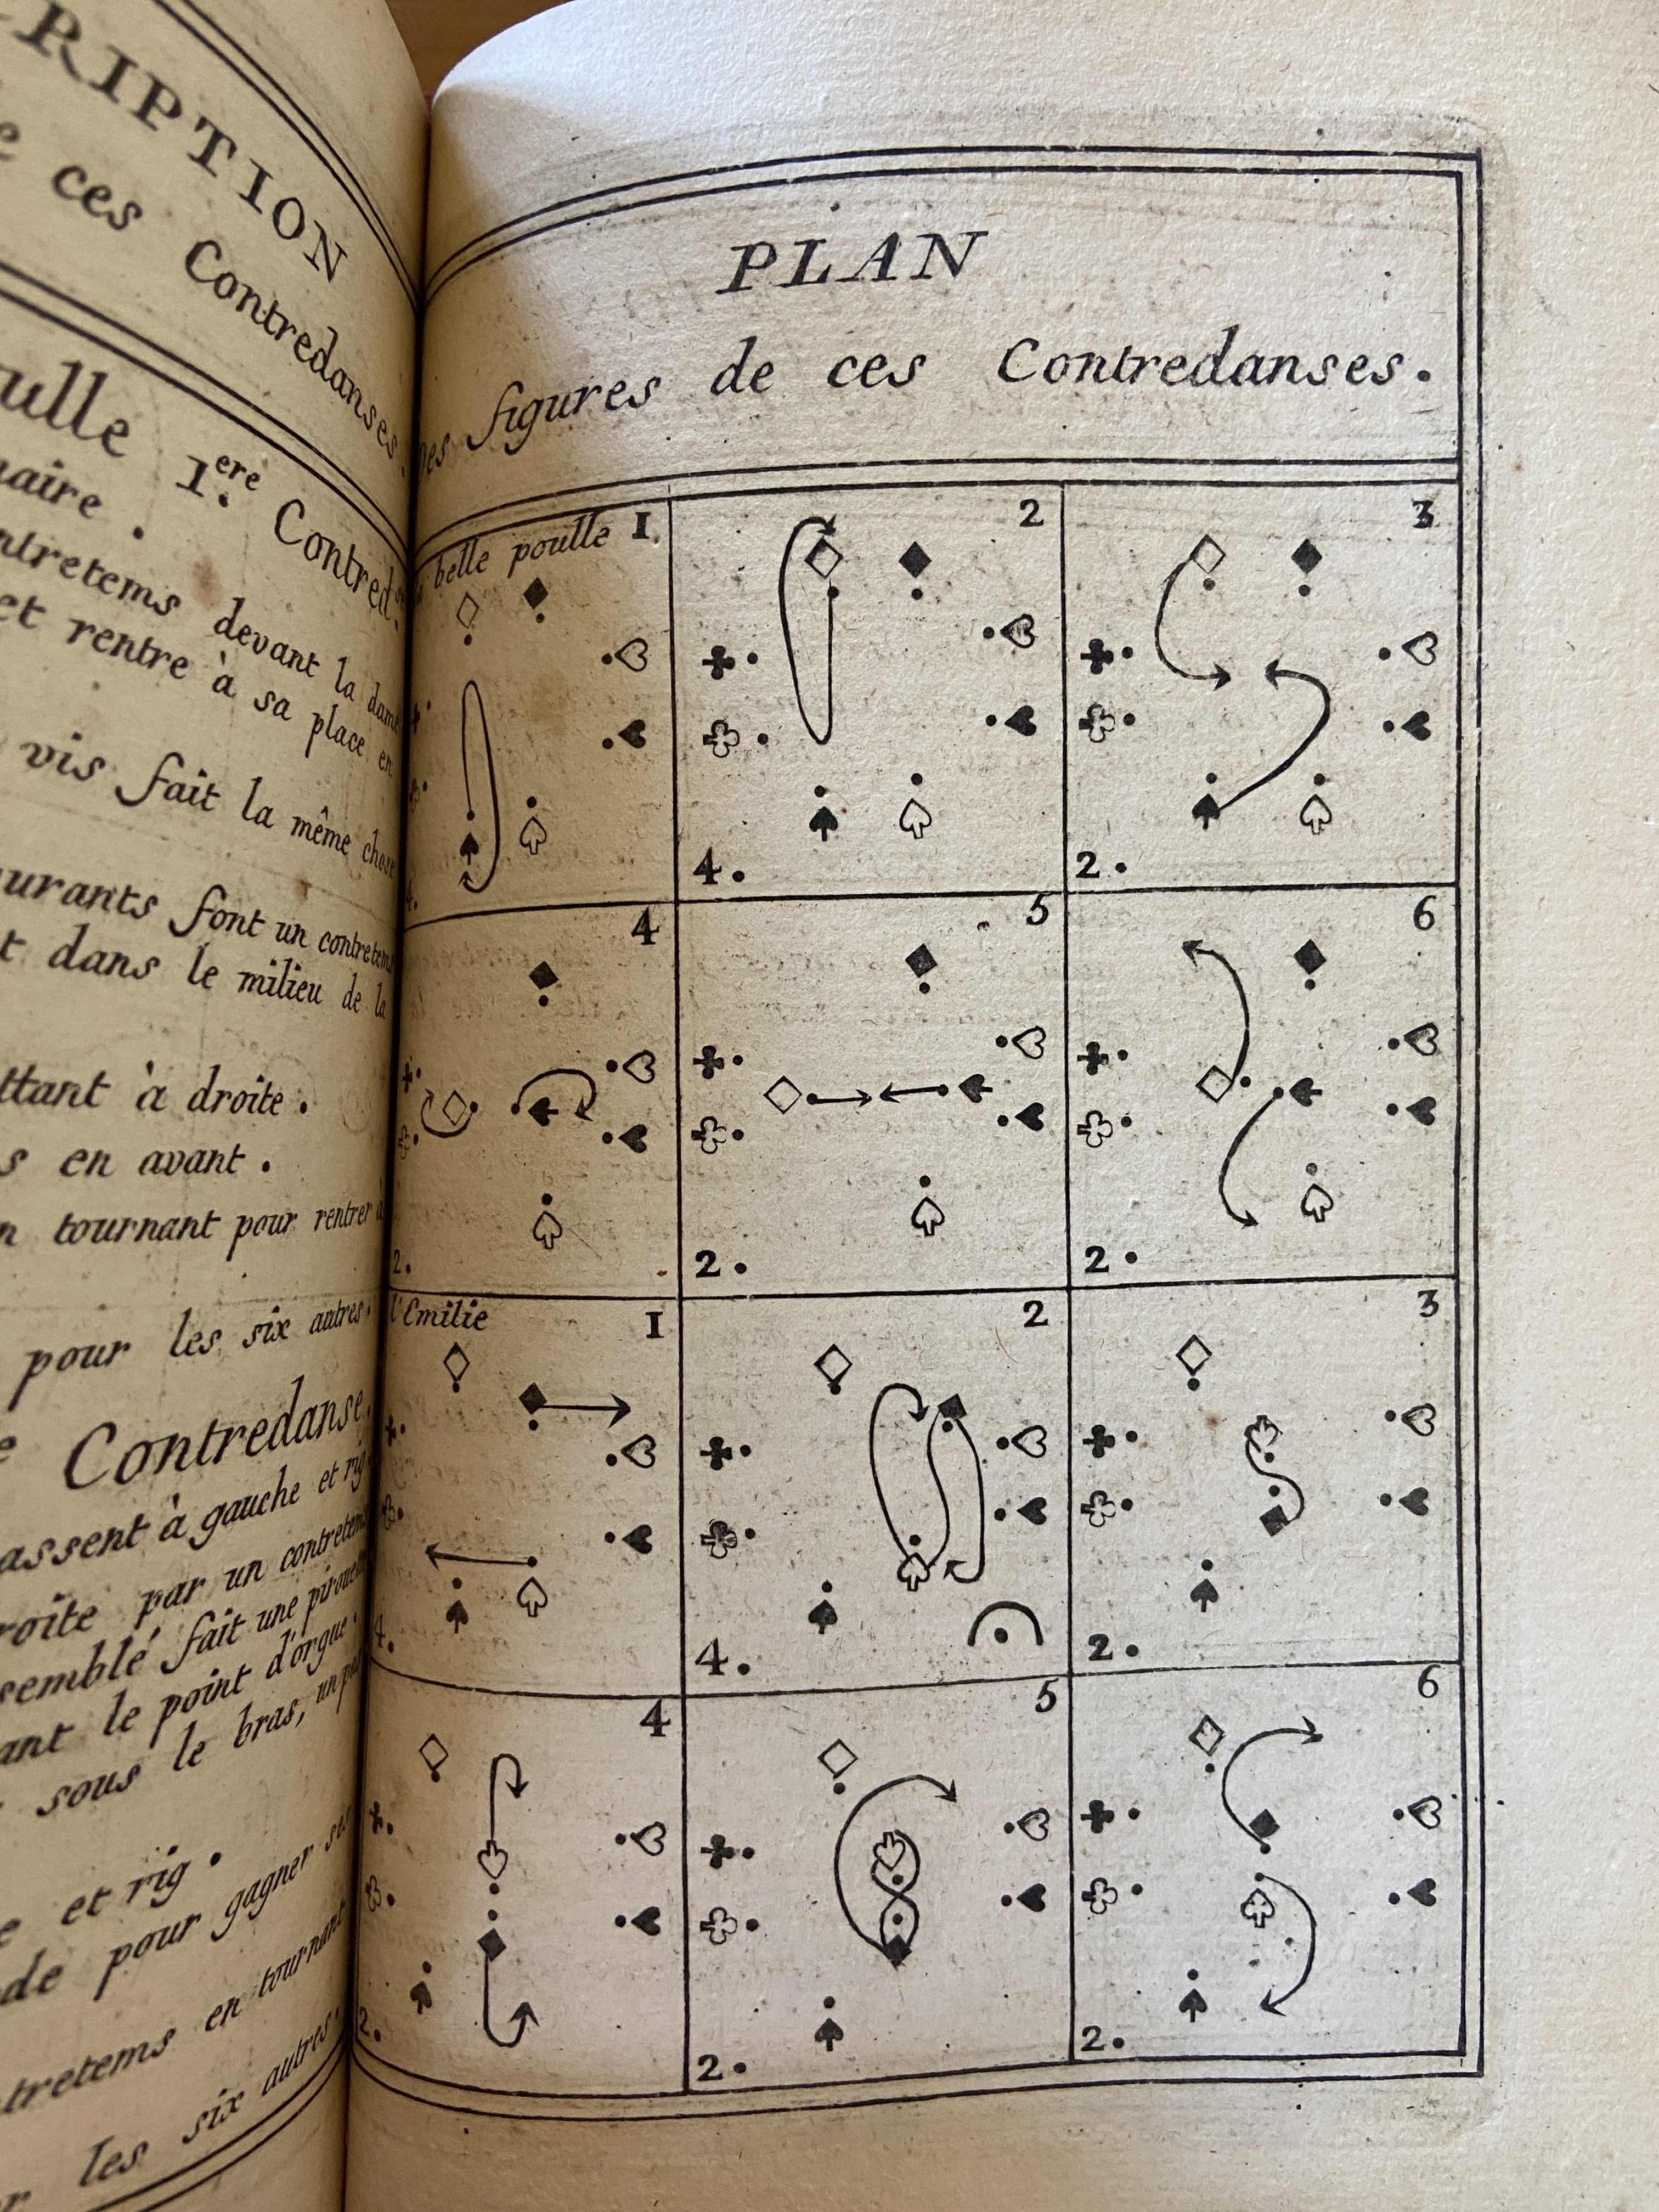 RIPTION
ces Contredanses.
ulle 1.ere Contred.
naire .
ntretems devant la dame
et rentre à sa place en
vis fait la même chose
urants font un contretems
t dans le milieu de la
ttant à droite .
s en avant .
n tournant pour rentrer à
pour les six autres.
Contredanse.
assent à gauche et rig.
roite par un contretems
semblé fait une pirouet
ant le point d'orgue.
sous le bras, un pas
e et rig .
de pour gagner ses
tretems en tournant
les six autres.
PLAN
Des figures de ces Contredanses.
belle poulle 1.
4.
2
4.
3
2.
4
2.
5
2.
6
2.
l'Emilie 1
4.
2
4.
3
2.
4
2.
5
2.
6
2.